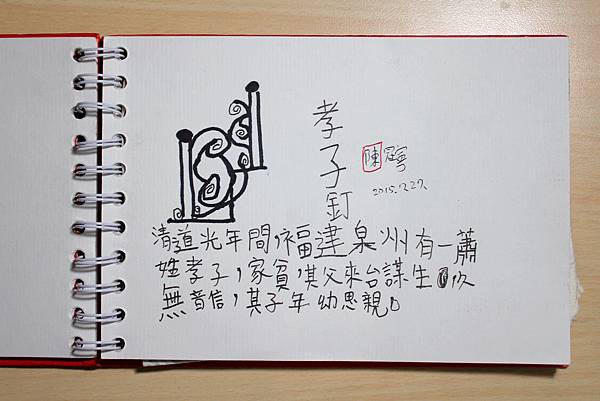 孝子釘
陳
2015.7.27.
清道光年間,福建泉州有一蕭
姓孝子,家貧,其父來台謀生
無音信,其子年幼思親。